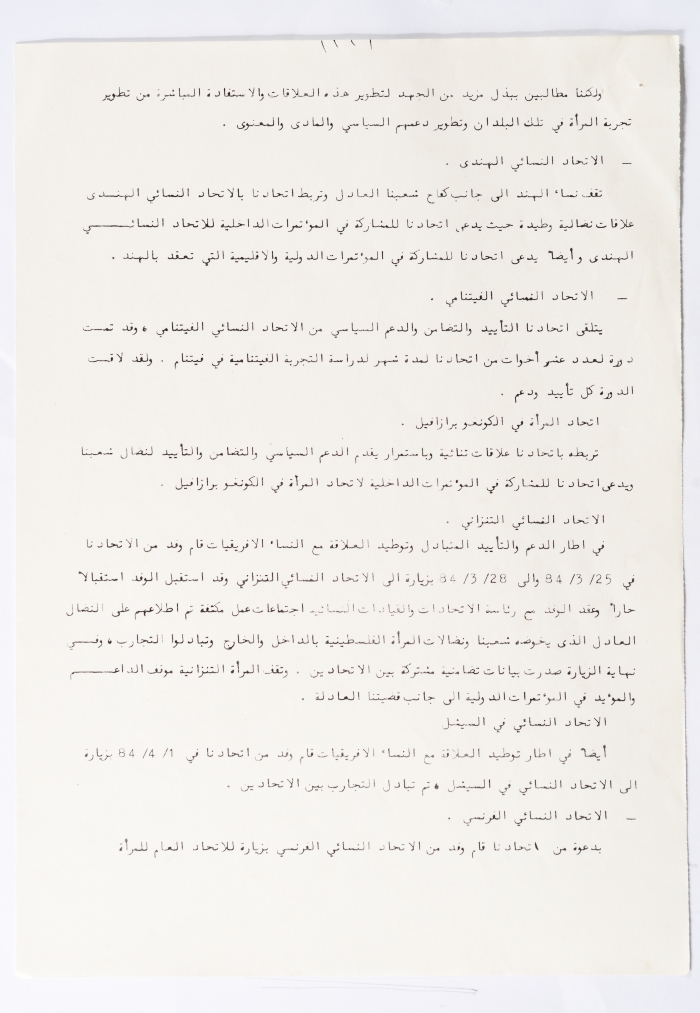 ولكننا مطالبين ببذل مزيد من الجهد لتطوير هذه العلاقات والاستفادة المباشرة من تطوير
تجربة المرأة في تلك البلدان وتطوير دعمهم السياسي والمادى والمعنوى .
ـ الاتحاد النسائي الهندى .
تقف نساء الهند الى جانب كفاح شعبنا العادل وتربط اتحادنا بالاتحاد النسائي الهنـدى
علاقات نضالية وطيدة حيث يدعى اتحادنا للمشاركة في المؤتمرات الداخلية للاتحاد النسائـــي
الهندى وأيضا يدعى اتحادنا للمشاركة في المؤتمرات الدولية والاقليمية التي تعقد بالهند .
ـ الاتحاد النسائي الفيتنامي .
يتلقى اتحادنا التأييد والتضامن والدعم السياسي من الاتحاد النسائي الفيتنامي ، وقد تمـت
دورة لعدد عشر أخوات من اتحادنا لمدة شهر لدراسة التجربة الفيتنامية في فيتنام . ولقد لاقـت
الدورة كل تأييد ودعم .
اتحاد المرأة في الكونغو برازافيل .
تربطه باتحادنا علاقات ثنائية وباستمرار يقدم الدعم السياسي والتضامن والتأييد لنضال شعبنا
ويدعى اتحادنا للمشاركة في المؤتمرات الداخلية لاتحاد المرأة في الكونغو برازافيل .
الاتحاد النسائي التنزاني .
في اطار الدعم والتأييد المتبادل وتوطيد العلاقة مع النساء الافريقيات قام وفد من الاتحادنا
في 25/ 3/ 84 والى 28/ 3/ 84 بزيارة الى الاتحاد النسائي التنزاني وقد استقبل الوفد استقبالا
حارا وعقد الوفد مع رئاسة الاتحادات والقيادات النسائيه اجتماعات عمل مكثفة تم اطلاعهم على النضال
العادل الذى يخوضه شعبنا ونضالات المرأة الفلسطينية بالداخل والخارج وتبادلوا التجارب ، وفـي
نهاية الزيارة صدرت بيانات تضامنية مشتركة بين الاتحادين . وتقف المرأة التنزانية موقف الداعــم
والمؤيد في المؤتمرات الدولية الى جانب قضيتنا العادلة .
الاتحاد النسائي في السيشل
أيضا في اطار توطيد العلاقة مع النساء الافريقيات قام وفد من اتحادنا في 1/ 4/ 84 بزيارة
الى الاتحاد النسائي في السيشل ، تم تبادل التجارب بين الاتحادين .
ـ الاتحاد النسائي الفرنسي .
بدعوة من اتحادنا قام وفد من الاتحاد النسائي الفرنسي بزيارة للاتحاد العام للمرأة